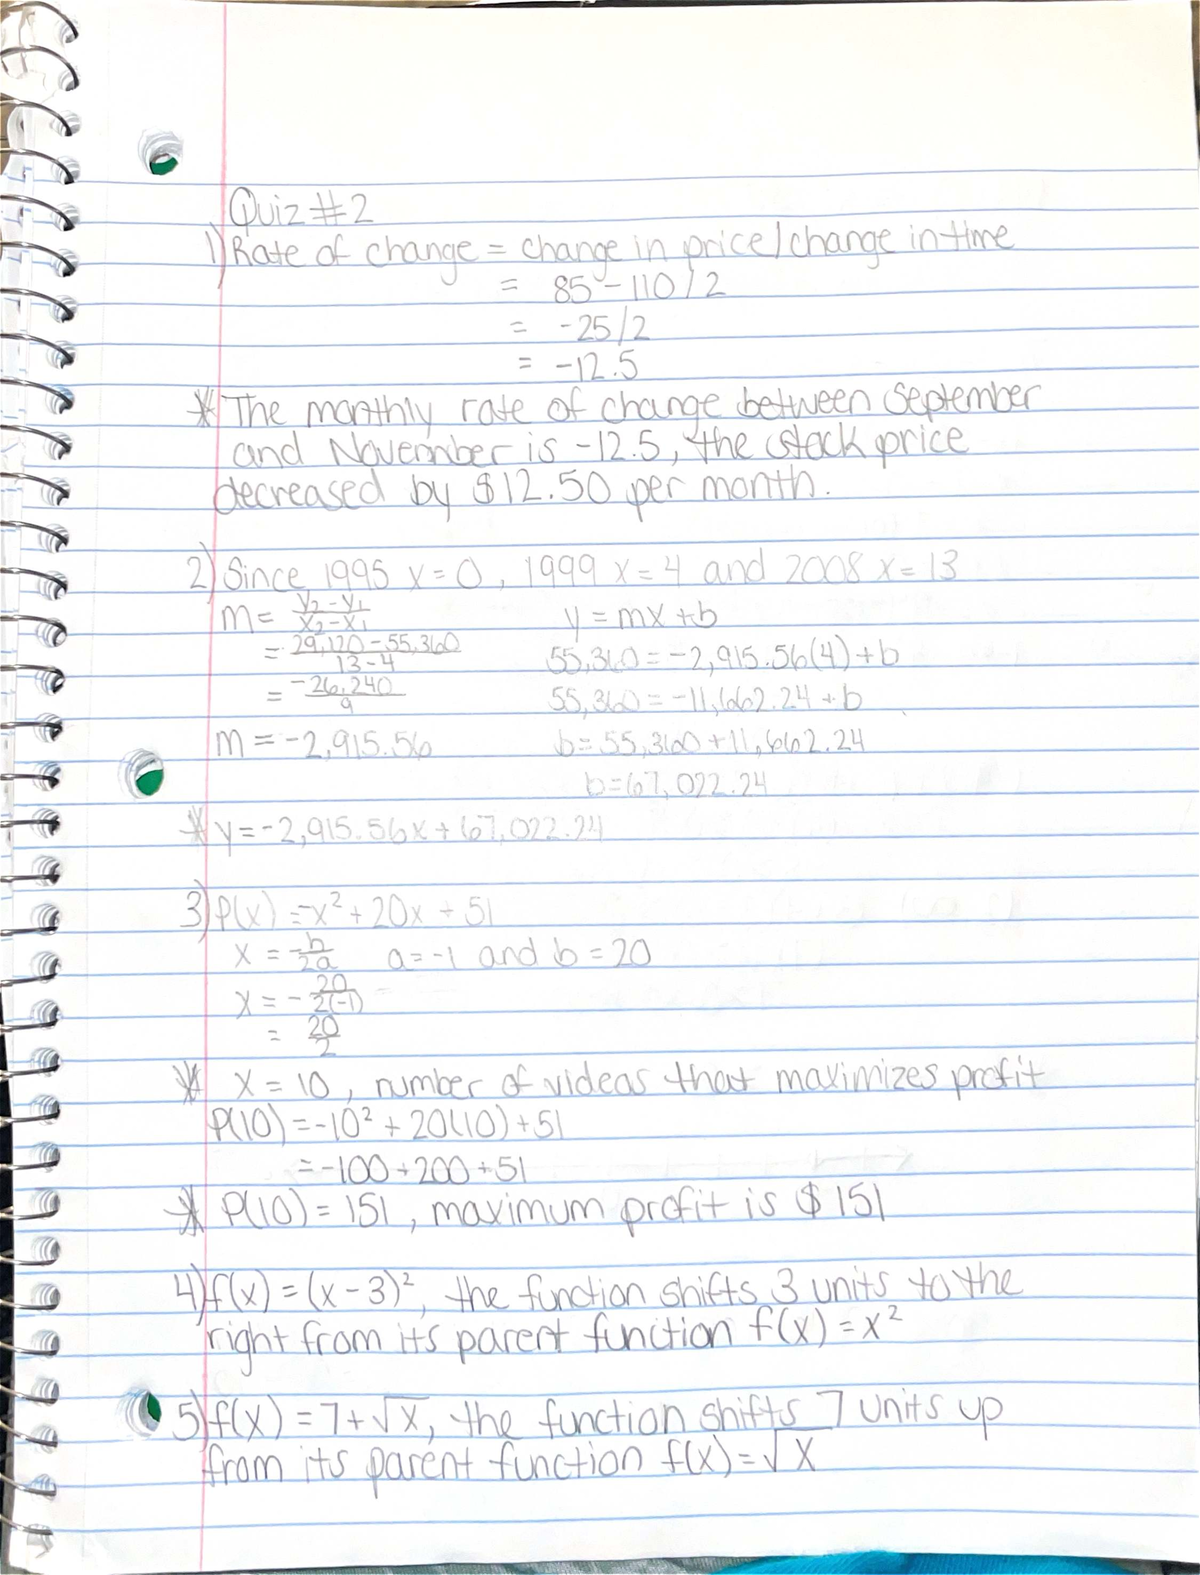 Quiz #2
1) Rate of change = change in price/change in time
= 85-110/2
= -25/2
= -12.5
* The monthly rate of change between September
and November is -12.5, the stock price
decreased by $12.50 per month.
2) Since 1995 x=0, 1999 x=4 and 2008 x=13
m= y₂-y₁/x₂-x₁ y=mx+b
= 29,120-55,360/13-4 55,360=-2,915.56(4)+b
= -26,240/9 55,360=-11,662.24+b
m=-2,915.56 b=55,360+11,662.24
b=67,022.24
* y=-2,915.56x+67,022.24
3) P(x)=-x²+20x+51
x=-b/2a a=-1 and b=20
x=-20/2(-1)
= 20/2
* x=10, number of videos that maximizes profit
P(10)=-10²+20(10)+51
=-100+200+51
* P(10)=151, maximum profit is $151
4) f(x)=(x-3)², the function shifts 3 units to the
right from its parent function f(x)=x²
5) f(x)=7+√x, the function shifts 7 units up
from its parent function f(x)=√x